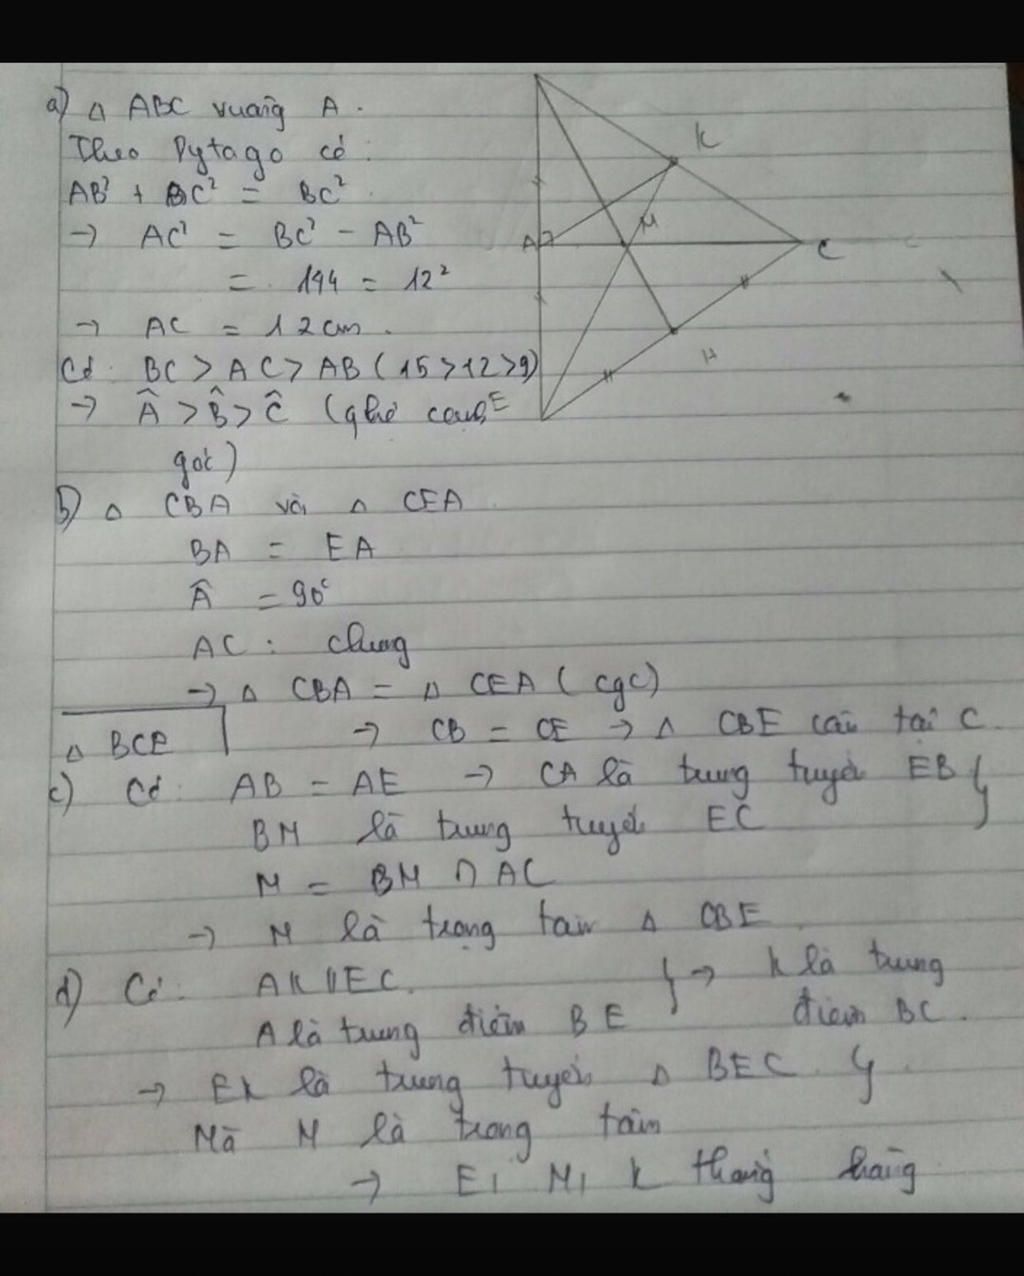 a) △ ABC vuông A.
Theo Pytago có:
AB² + BC² = BC²
→ AC² = BC² - AB²
= 144 = 12²
→ AC = 12 cm.
Có: BC > AC > AB (15 > 12 > 9)
→ Â > B̂ > Ĉ (
góc)
K
M
A
C
H
E
b) △ CBA và △ CEA
BA = EA
Â = 90°
AC: chung
→ △ CBA = △ CEA (cgc)
→ CB = CE → △ CBE cân tại C
△ BCE
c) Có: AB = AE → CA là trung tuyến EB }
BM là trung tuyến EC
M = BM ∩ AC
→ M là trọng tâm △ CBE
d) Có: AK // EC. } → K là trung
A là trung điểm BE điểm BC.
→ EK là trung tuyến △ BEC }
Mà M là trọng tâm
→ E, M, K thẳng hàng